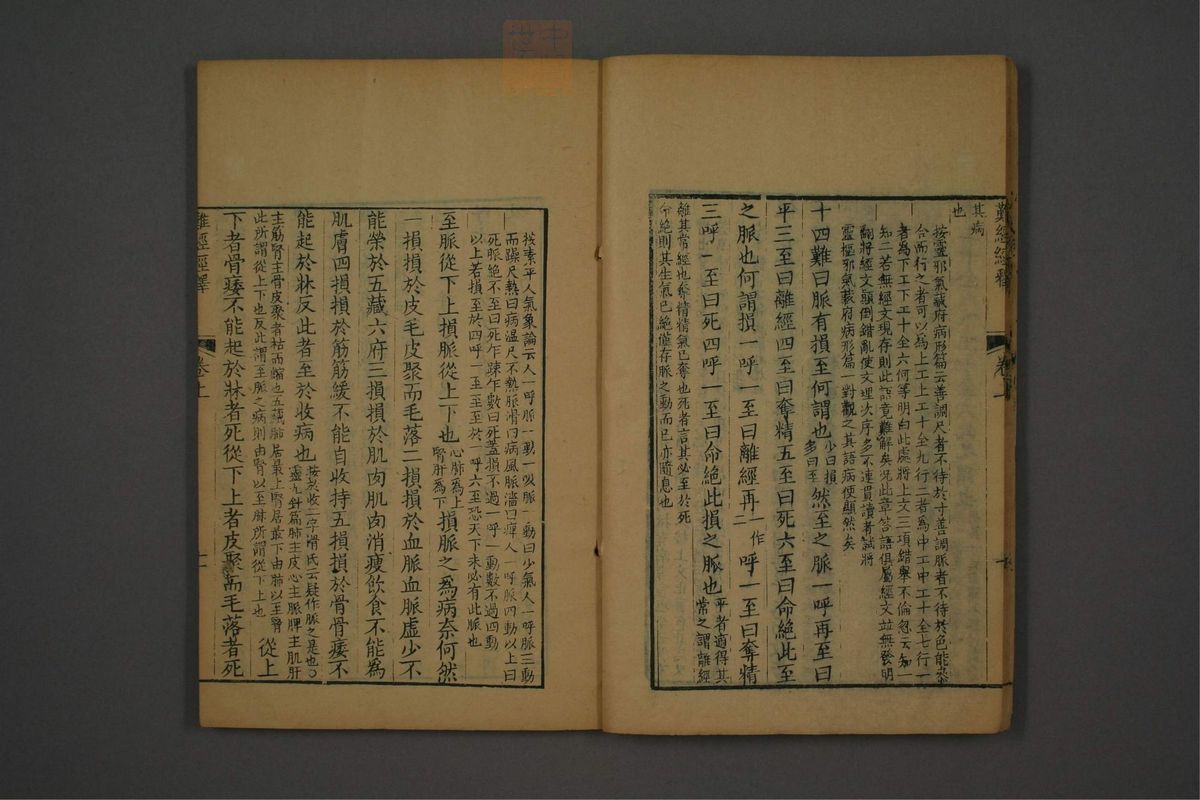 難經經釋
卷上
其病
也
按靈邪氣藏府病形篇云善調尺者不待於寸善調脈者不待於色能參
合而行之者可以為上工上工十全九行二者為中工中工十全七行一
者為下工下工十全六何等明白此處將上文三項錯舉不倫忽云知一
知二若無經文現存則此語竟難解矣況此章答語俱屬經文並無發明
翻將經文顛倒錯亂使文理次序多不連貫讀者試將
靈樞邪氣藏府病形篇一對觀之其語病便顯然矣
十四難曰脈有損至何謂也少曰損多曰至然至之脈一呼再至曰
平三至曰離經四至曰奪精五至曰死六至曰命絕此至
之脈也何謂損一呼一至曰離經再一作二呼一至曰奪精
三呼一至曰死四呼一至曰命絕此損之脈也平者適得其常之謂離經
離其常經也奪精精氣已奪也死者言其必至於死
命絕則其生氣已絕僅存脈之動而已亦隨息也
按素平人氣象論云人一呼脈一動一吸脈一動曰少氣人一呼脈三動
而躁尺熱曰病溫尺不熱脈滑曰病風脈濇曰痺人一呼脈四動以上曰
死脈絕不至曰死乍疎乍數曰死蓋損不過一呼一動數不過四動
以上若損至於四呼一至至至於一呼六至恐天下未必有此脈也
至脈從下上損脈從上下也心肺為上腎肝為下損脈之為病奈何然
一損損於皮毛皮聚而毛落二損損於血脈血脈虛少不
能榮於五藏六府三損損於肌肉肌肉消瘦飲食不能為
肌膚四損損於筋筋緩不能自收持五損損於骨骨痿不
能起於牀反此者至於收病也按於收二字滑氏云疑作脈之是也○靈九針篇肺主皮心主脈脾主肌肝
主筋腎主骨皮聚者枯而縮也五藏肺居最上腎居最下由肺以至腎
此所謂從上下也反此謂至脈之病則由腎以至肺所謂從下上也從上
下者骨痿不能起於牀者死從下上者皮聚而毛落者死
難經經釋
卷上